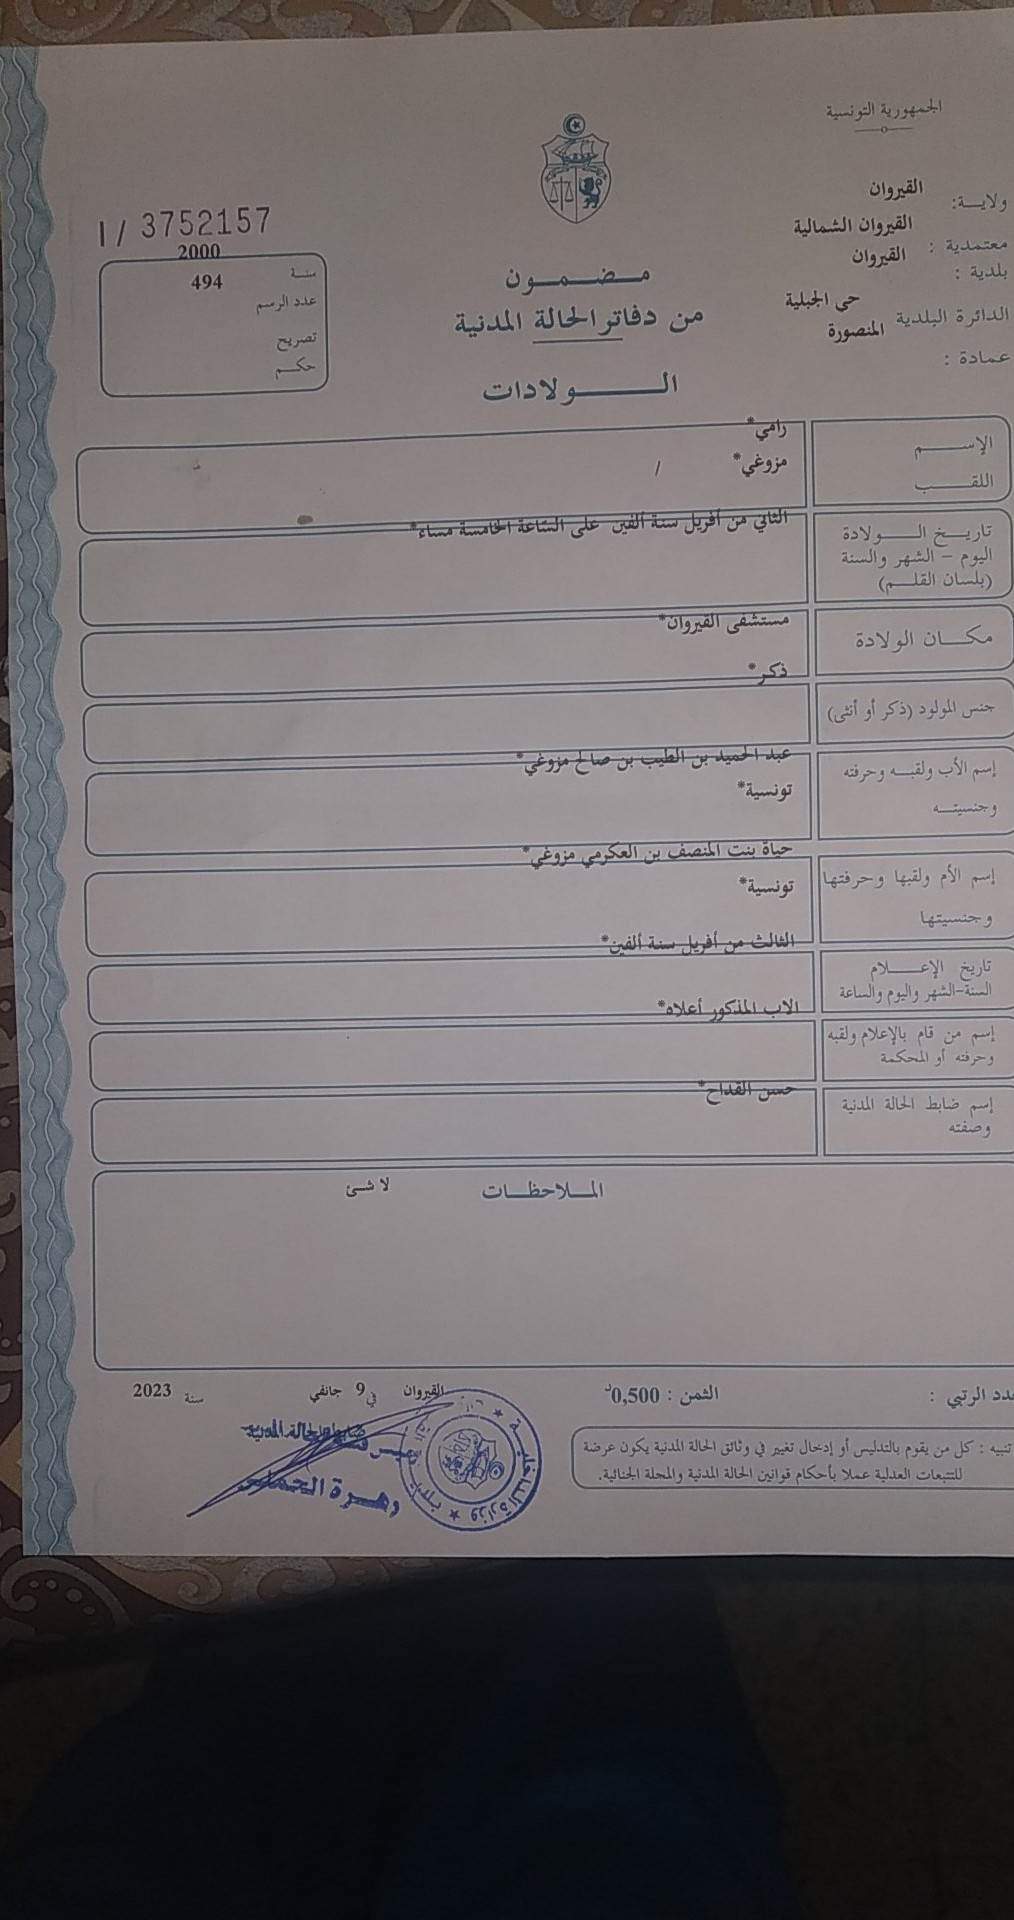 الجمهورية التونسية
ولايـة: القيروان
معتمدية : القيروان الشمالية
بلدية : القيروان
الدائرة البلدية حي الجبلية
المنصورة
عمادة :
I / 3752157
سنة 2000
عدد الرسم 494
تصريح
حكـم
مـضـمـون
من دفاتر الحالة المدنية
الـولادات
الإسـم رامي*
اللقـب مزوغي* /
تاريـخ الـولادة الثاني من أفريل سنة ألفين على الساعة الخامسة مساء*
اليوم - الشهر والسنة
(بلسان القلـم)
مكـان الولادة مستشفى القيروان*
ذكر*
جنس المولود (ذكر أو أنثى)
إسم الأب ولقبـه وحرفته عبد الحميد بن الطيب بن صالح مزوغي*
وجنسيتـه تونسية*
إسم الأم ولقبها وحرفتها حياة بنت المنصف بن العكرمي مزوغي*
وجنسيتها تونسية*
تاريخ الإعـلام الثالث من أفريل سنة ألفين*
السنة-الشهر واليوم والساعة
إسم من قام بالإعلام ولقبه الاب المذكور أعلاه*
وحرفته أو المحكمة
إسم ضابط الحالة المدنية حسن القداح*
وصفته
المـلاحظـات
لا شئ
دد الرتبي :
الثمن : 0,500د
القيروان في 9 جانفي سنة 2023
تنبيه : كل من يقوم بالتدليس أو إدخال تغيير في وثائق الحالة المدنية يكون عرضة
للتتبعات العدلية عملا بأحكام قوانين الحالة المدنية والمجلة الجنائية.
ضابط الحالة المدنية
وزارة الداخلية